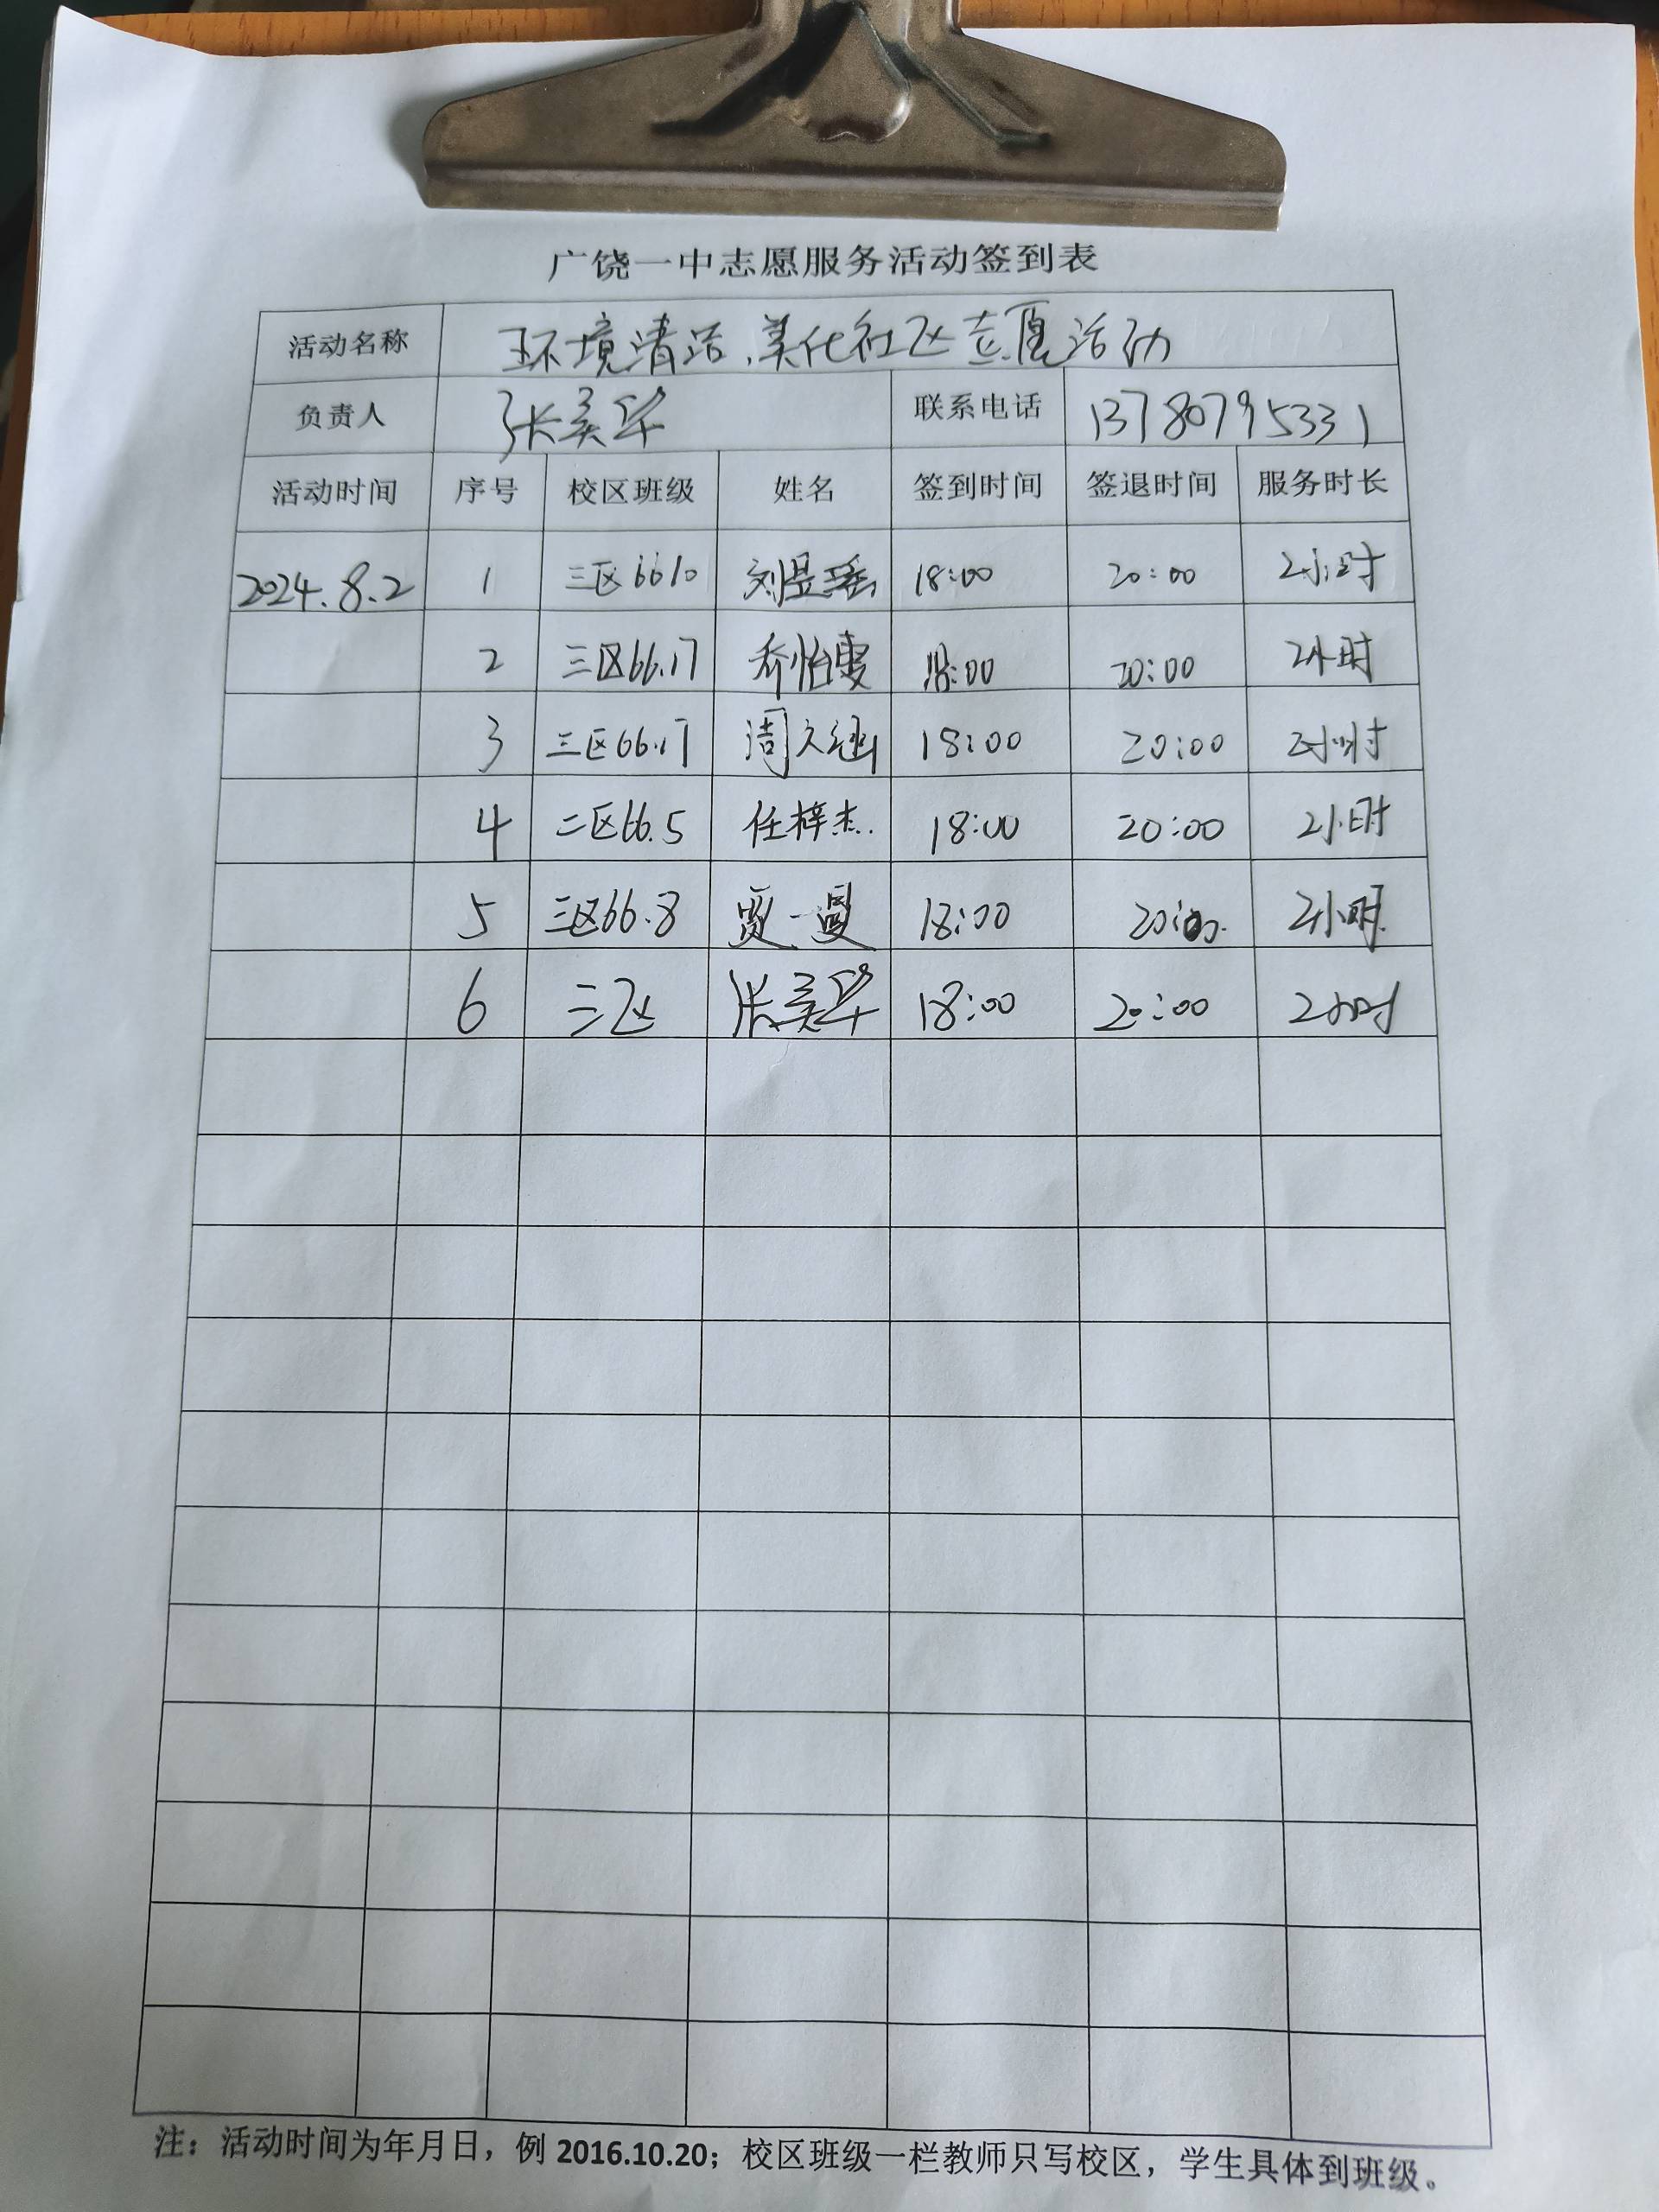 广饶一中志愿服务活动签到表
活动名称 环境清洁、美化社区志愿活动
负责人 张美华 联系电话 13780795331
活动时间 序号 校区班级 姓名 签到时间 签退时间 服务时长
2024.8.2 1 三区6610 刘昱瑶 18:00 20:00 2小时
2 三区66.17 乔怡雯 18:00 20:00 2小时
3 三区66.17 周文涵 18:00 20:00 2小时
4 二区66.5 任梓杰. 18:00 20:00 2小时
5 三区66.8 贾一曼 18:00 20:00. 2小时
6 三区 张美华 18:00 20:00 2小时
注：活动时间为年月日，例 2016.10.20；校区班级一栏教师只写校区，学生具体到班级。